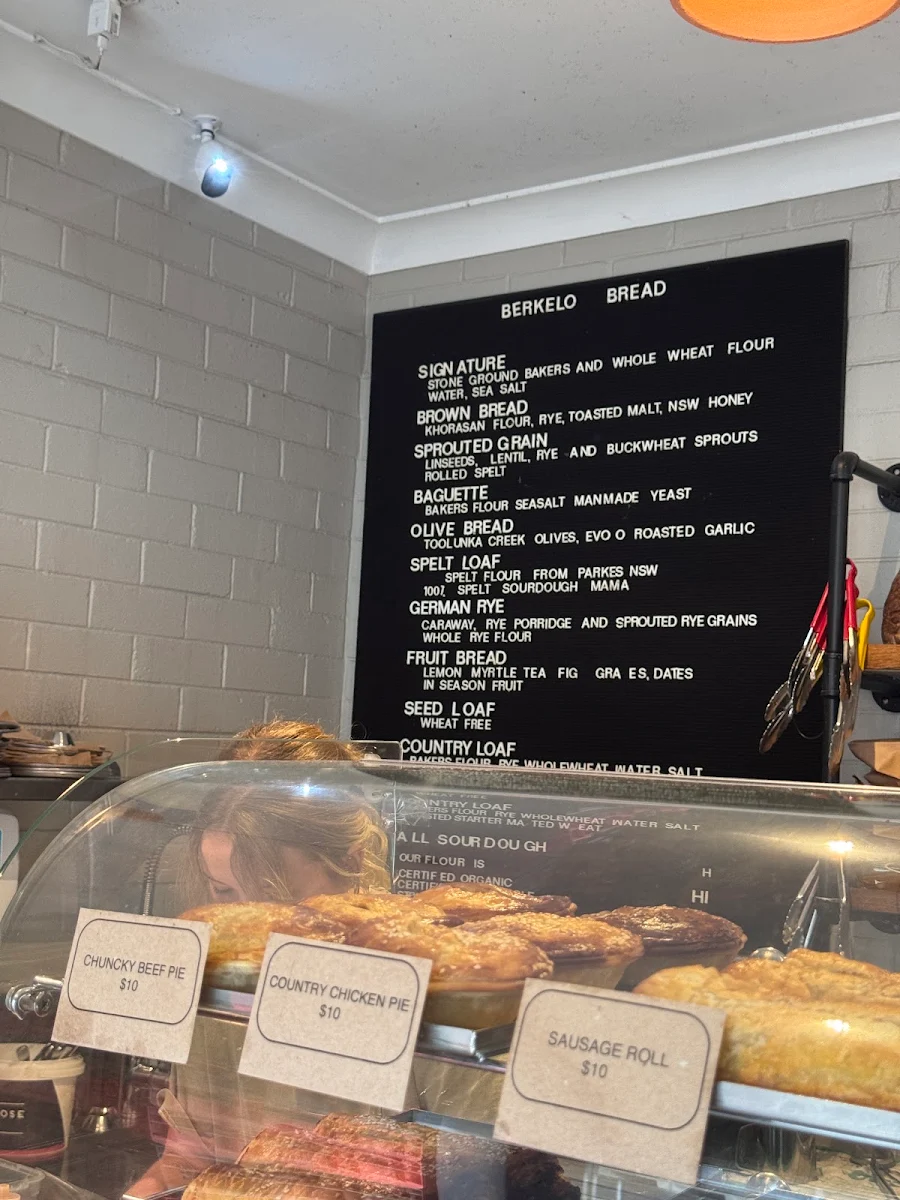 BERKELO BREAD
SIGNATURE
STONE GROUND BAKERS AND WHOLE WHEAT FLOUR
WATER, SEA SALT
BROWN BREAD
KHORASAN FLOUR, RYE, TOASTED MALT, NSW HONEY
SPROUTED GRAIN
LINSEEDS, LENTIL, RYE AND BUCKWHEAT SPROUTS
ROLLED SPELT
BAGUETTE
BAKERS FLOUR SEASALT MANMADE YEAST
OLIVE BREAD
TOOLUNKA CREEK OLIVES, EVO O ROASTED GARLIC
SPELT LOAF
SPELT FLOUR FROM PARKES NSW
100% SPELT SOURDOUGH MAMA
GERMAN RYE
CARAWAY, RYE PORRIDGE AND SPROUTED RYE GRAINS
WHOLE RYE FLOUR
FRUIT BREAD
LEMON MYRTLE TEA FIG GRA ES, DATES
IN SEASON FRUIT
SEED LOAF
WHEAT FREE
COUNTRY LOAF
BAKERS FLOUR RYE WHOLEWHEAT WATER SALT
NTRY LOAF
ERS FLOUR RYE WHOLEWHEAT WATER SALT
STED STARTER MA TED W EAT
ALL SOURDOUGH
OUR FLOUR IS
CERTIF ED ORGANIC
H
HI
CHUNCKY BEEF PIE
$10
COUNTRY CHICKEN PIE
$10
SAUSAGE ROLL
$10
OSE